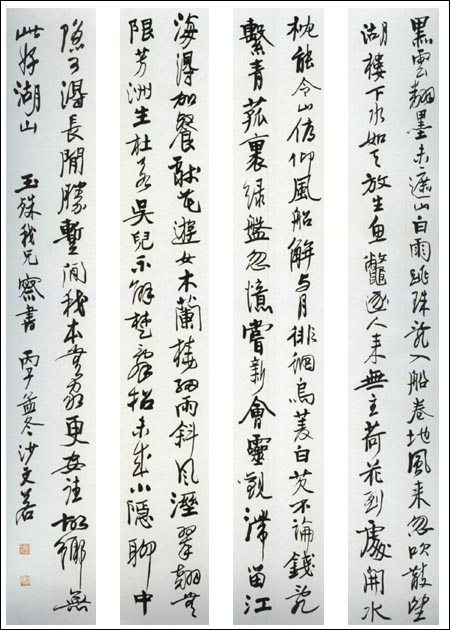 黑雲翻墨未遮山白雨跳珠亂入船卷地風来忽吹散望
湖樓下水如天放生魚鱉逐人来無主荷花到處開水
枕能令山俯仰風船解与月徘徊烏菱白芡不論錢亂
繫青菰裹緑盤忽憶嘗新會靈觀滯留江
海得加餐獻花遊女木蘭橈細雨斜風溼翠翹無
限芳洲生杜若吳兒不解楚辭招未成小隱聊中
隱可得長閒勝蹔閒我本無家更安往故鄉無
此好湖山 玉 我兄 書 丙子孟冬沙文若